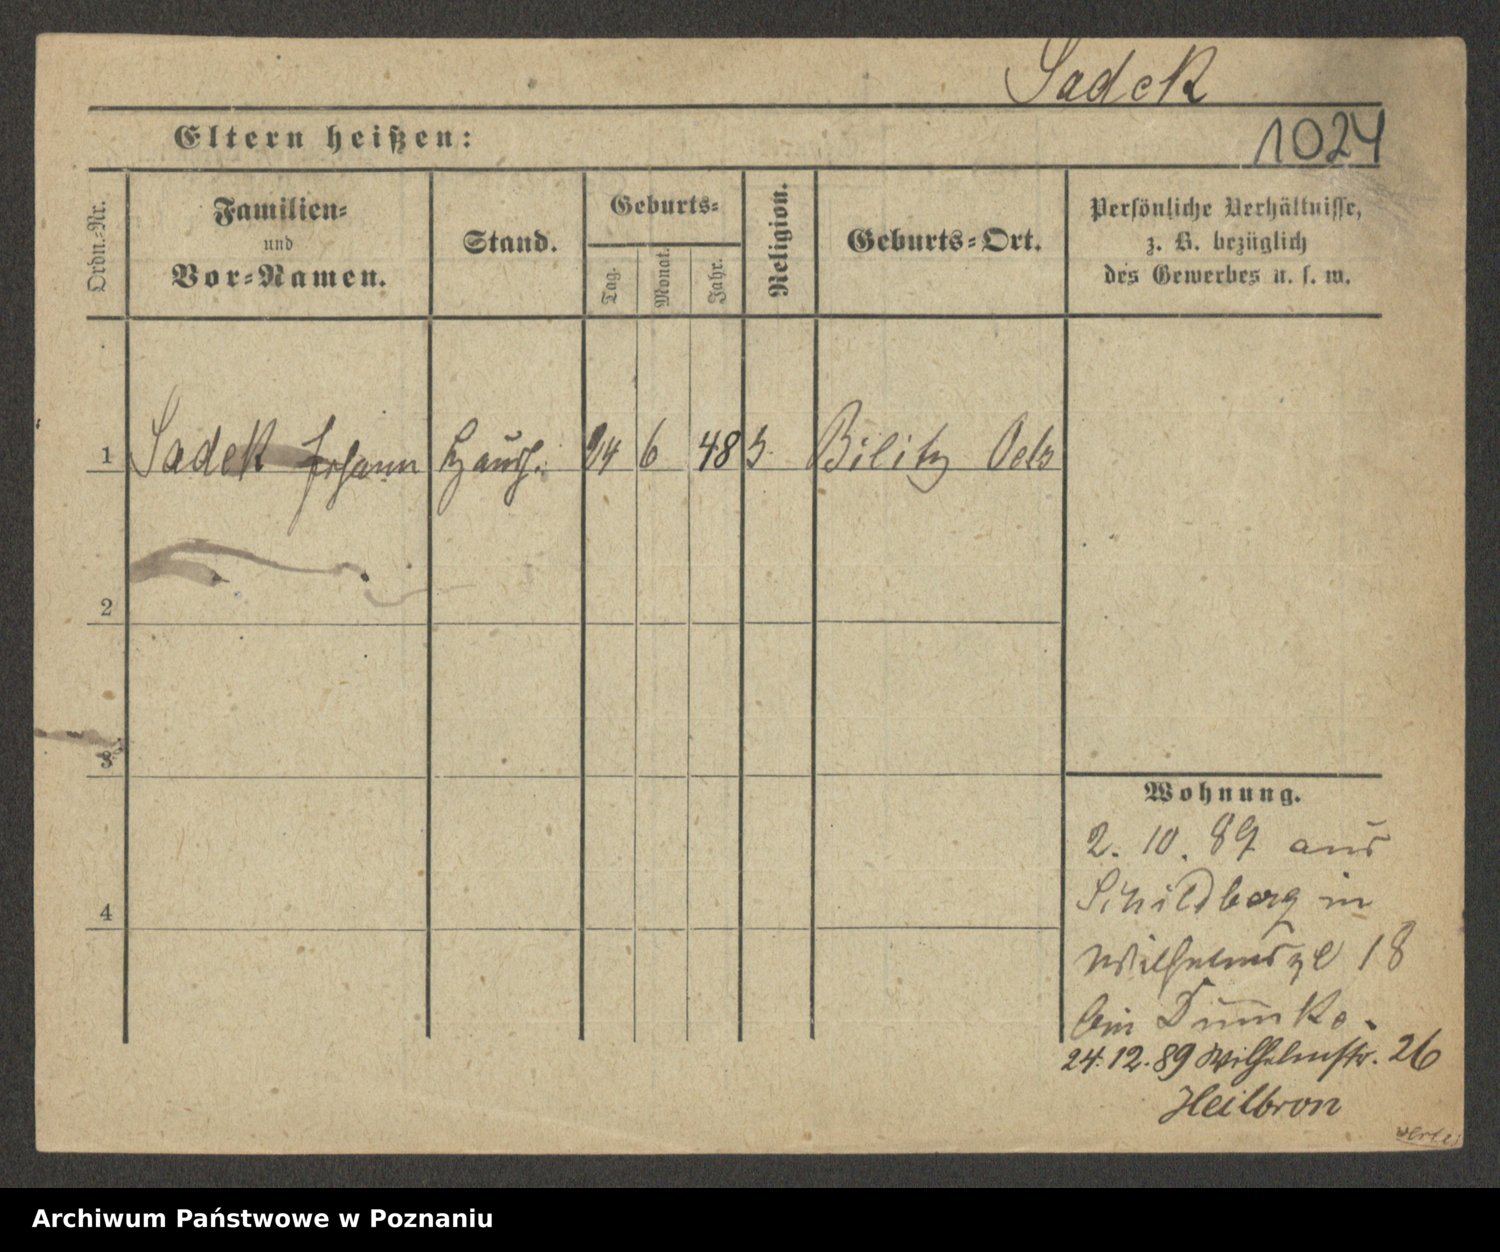 Sadek
Eltern heißen:
1024
Ordn.-Nr.
Familien-
und
Vor-Namen.
Stand.
Geburts-
Tag.
Monat.
Jahr.
Religion.
Geburts-Ort.
Persönliche Verhältnisse,
z. B. bezüglich
des Gewerbes u. s. w.
1 Sadek Johann 24 6 48 Bilitz Oels
2
3
4
Wohnung.
2. 10. 89 aus
Schildberg in
Wilhelmspl 18
bei Dümke.
24. 12. 89 Wilhelmstr. 26
Heilbron
Archiwum Państwowe w Poznaniu